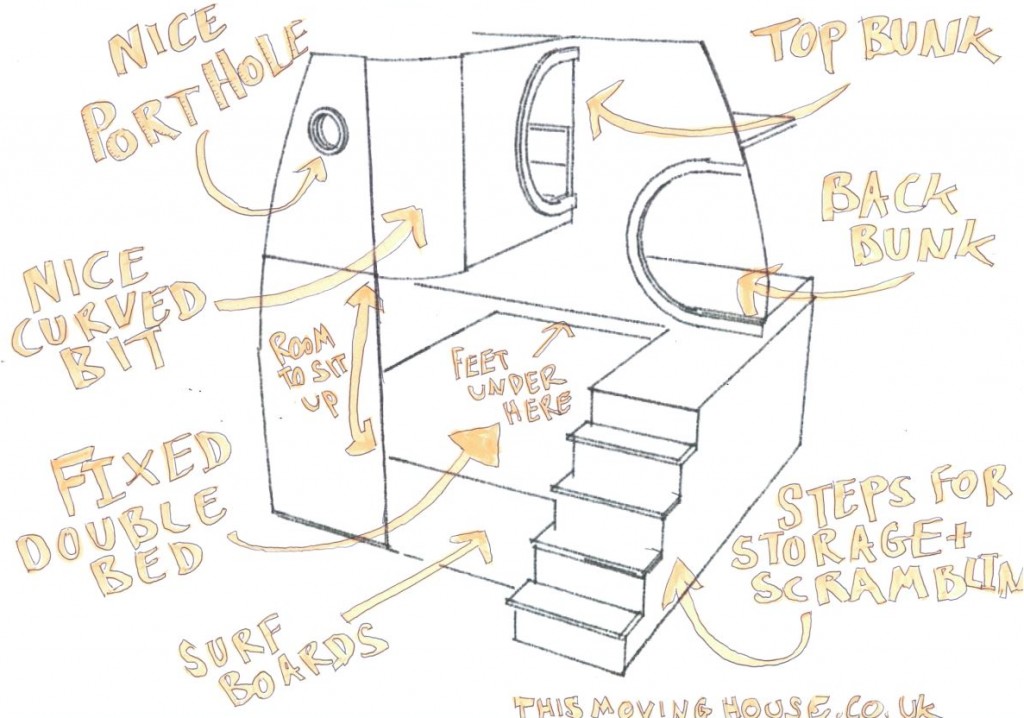 NICE
PORTHOLE
TOP BUNK
BACK
BUNK
NICE
CURVED
BIT
ROOM
TO SIT
UP
FEET
UNDER
HERE
FIXED
DOUBLE
BED
STEPS FOR
STORAGE +
SCRAMBLIN
SURF
BOARDS
THISMOVINGHOUSE.CO.UK